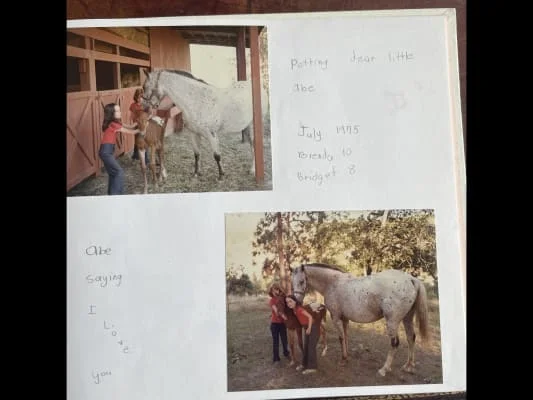 Potting dear little
abe
July 1975
Brenda 10
Bridget 8
Abe
Saying
I
Love
you